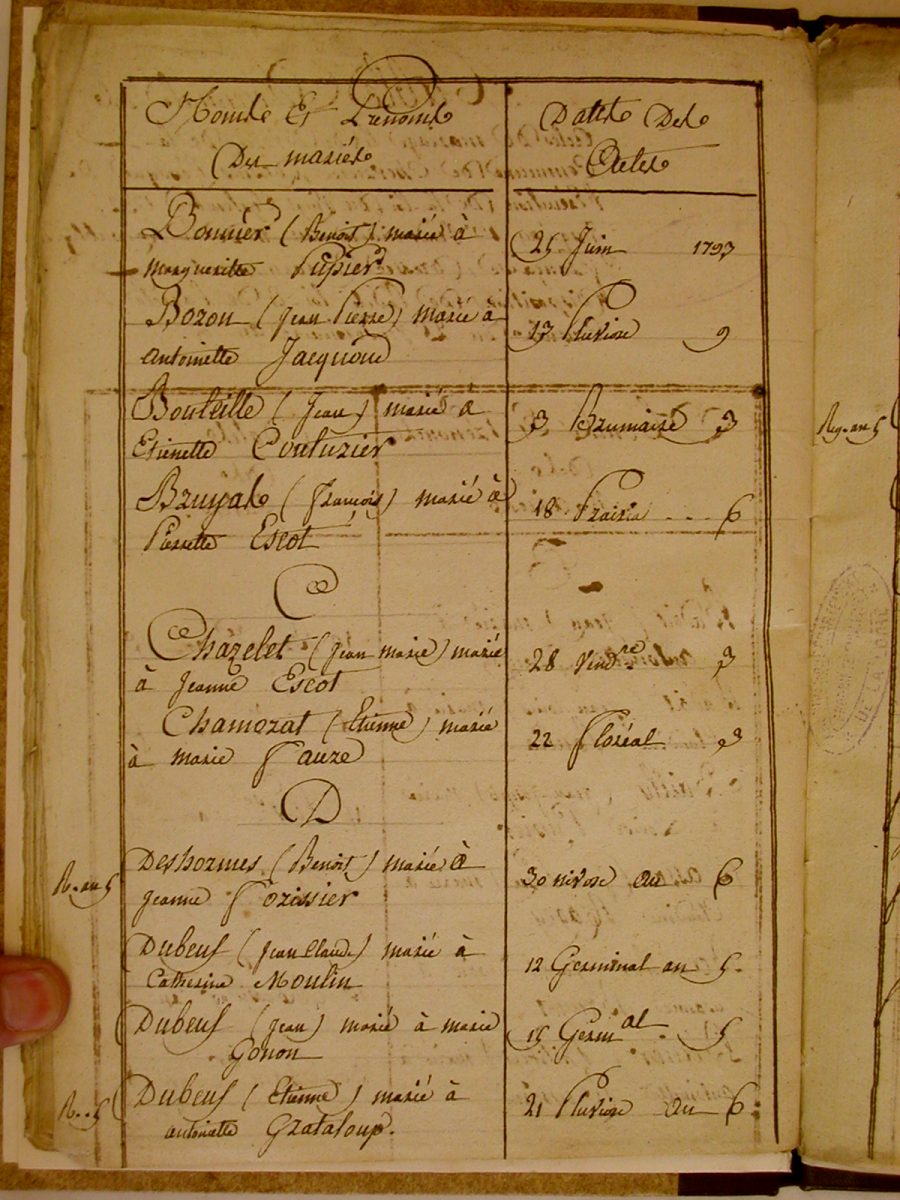 Noms Et Prenoms
Des mariés
Dates Des
Actes
Bonnier (Benoit) marié à
Margueritte Pupier
25 Juin 1793
Bozon (Jean Pierre) marié à
antoinette Jacquond
17 Pluviose 9
Bouteille (Jean) marié à
Etienette Couturier
3 Brumaire 3
Bruyas (François) marié à
Pierrette Escot
18 Prairial - - - 6
C
Chazelet (Jean marie) marié
à Jeanne Escot
28 Vind.re 3
Chamozat (Etienne) marié
à marie Fauze
22 Floréal 3
D
R. an 5
Deshormes (Benoit) marié à
Jeanne Forissier
30 nivose an 6
Dubeuf (Jean Claude) marié à
Catherine Moulin
12 Germinal an 5.
Dubeuf (Jean) marié à marie
Gonon
15 Germ.al - 5
R. . 5
Dubeuf (Etienne) marié à
antoinette Grataloup.
21 Pluviose an 6
Reg. an 5
DE LA LOIRE